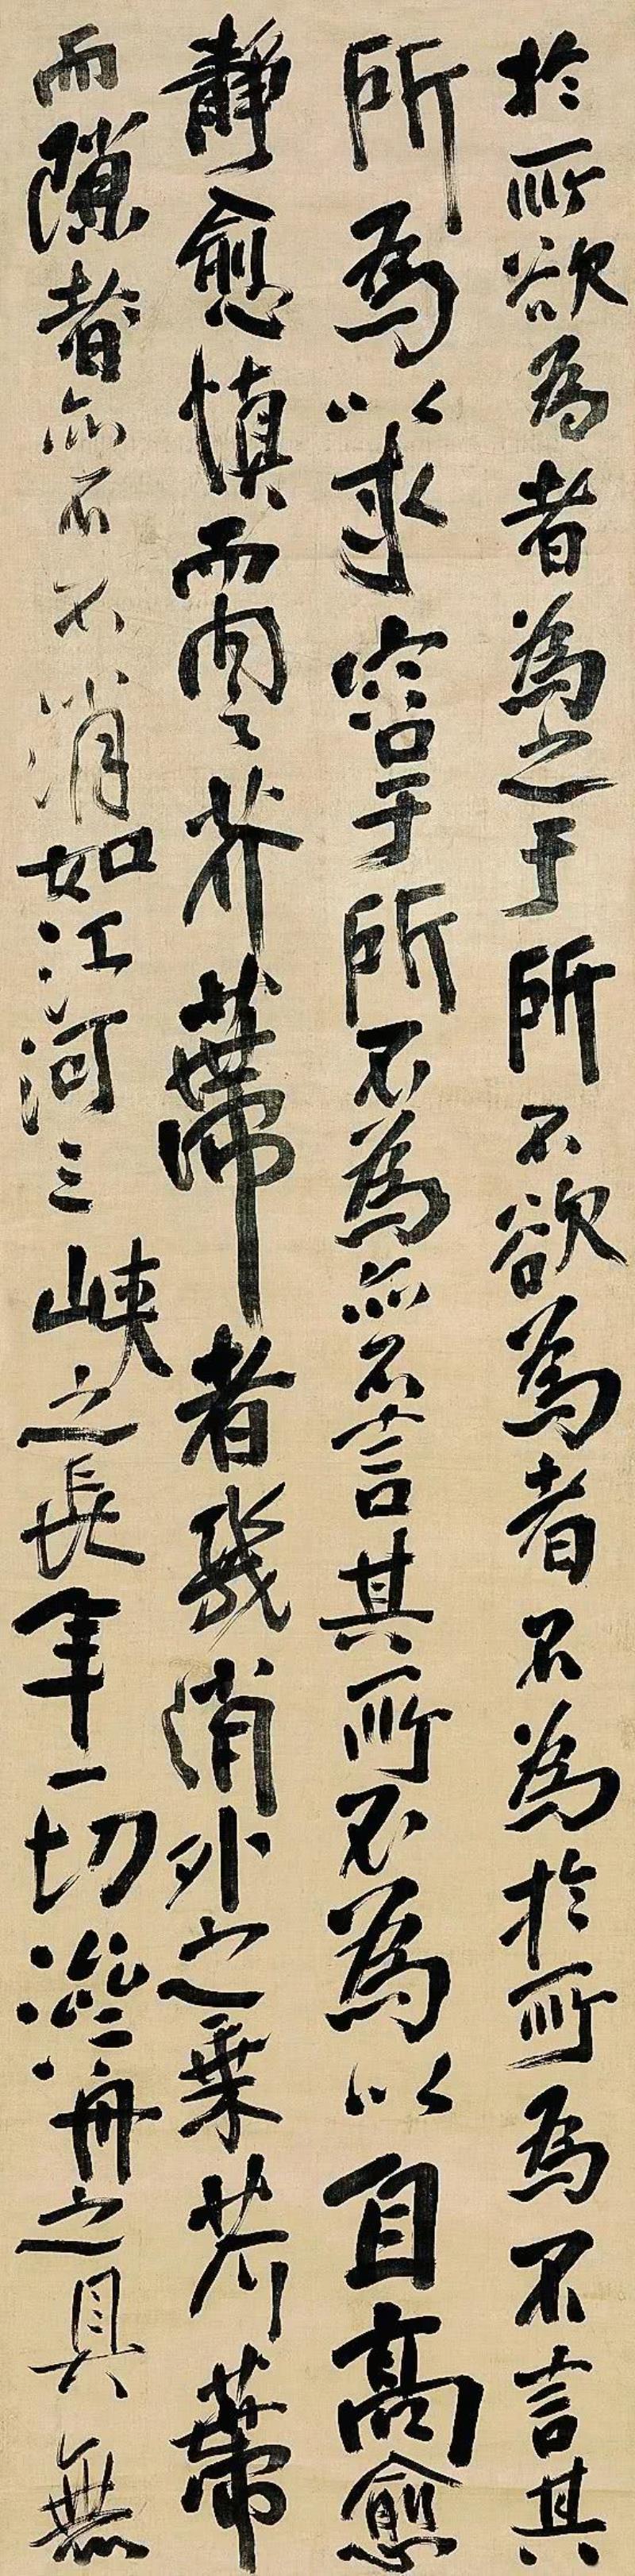 於所欲為者為之于所不欲為者不為於所為不言其
所為以求容于所不為亦不言其所不為以自高愈
靜愈慎而內之芥蔕者幾消外之乘芥蔕
而隙者亦不不消如江河三峽之長年一切濟舟之具無